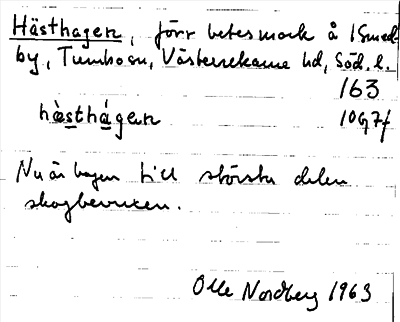 Hästhagen, förr betesmark å Smed-
by, Tumbo sn, Västerrekarne hd, Söd. l.
163
hàsthágen 10g7f
Nu är hagen till största delen
skogbevuxen.
Olle Nordberg 1963